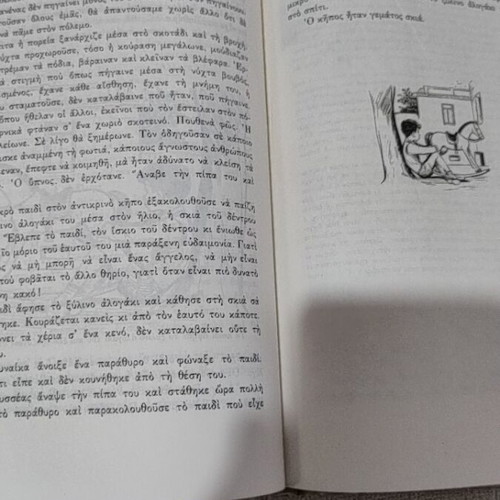 ούσαν όλους ἐμᾶς, θὰ ἀπαντούσαμε χωρὶς ἄλλο ὅτι θὰ
πᾶμε στὸν πόλεμο.
ἡ πορεία ξανάρχιζε μέσα στὸ σκοτάδι καὶ τὴ βροχή.
νύχτα προχωροῦσε, τόσο ἡ κούραση μεγάλωνε, μούδιαζαν
τρέμαν τὰ πόδια, βάραιναν καὶ κλεῖναν τὰ βλέφαρα.
στιγμὴ ποὺ ὅπως πήγαινε μέσα στὴ νύχτα βουβός,
ἔχανε κάθε αἴσθηση, ἔχανε τὴ μνήμη του.
σταματοῦσε, δὲν καταλάβαινε ποῦ ἦταν, ποῦ πήγαινε.
ὅπου ἤθελαν οἱ ἄλλοι, ἐκεῖνοι ποὺ τὸν ἔστειλαν στὸν
φτάναν σ' ἕνα χωριὸ σκοτεινό. Πουθενὰ φῶς. Ἡ
Σὲ λίγο θὰ ξημέρωνε. Τὸν ὁδηγοῦσαν σὲ κάποιο
ἀναμμένη τὴ φωτιά, κάποιους ἄγνωστους ἀνθρώπους
ἔπεφτε νὰ κοιμηθῆ, μὰ ἦταν ἀδύνατο νὰ κλείση τὰ
Ὁ ὕπνος δὲν ἐρχότανε. Ἄναβε τὴν πίπα του καὶ
παιδὶ στὸν ἀντικρινὸ κῆπο ἐξακολουθοῦσε νὰ παίζη
ἀλογάκι του μέσα στὸν ἥλιο, ἡ σκιὰ τοῦ δέντρου
Ἔβλεπε τὸ παιδί, τὸν ἴσκιο τοῦ δέντρου κι ἔνιωθε ὡς
μόριο τοῦ ἑαυτοῦ του μιὰ παράξενη εὐδαιμονία. Γιατί
νὰ μὴ μπορῆ νὰ εἶναι ἕνας ἄγγελος, νὰ μὴν εἶναι
ποὺ φοβᾶται τὸ ἄλλο θηρίο, γιατὶ ὅταν εἶναι πιὸ δυνατὸ
κακό!
ἄφησε τὸ ξύλινο ἀλογάκι καὶ κάθησε στὴ σκιὰ σὲ
Κουράζεται κανεὶς κι ἀπὸ τὸν ἑαυτό του κάποτε.
τὰ χέρια σ' ἕνα κενό, δὲν καταλαβαίνει οὔτε τὴ
ἄνοιξε ἕνα παράθυρο καὶ φώναξε τὸ παιδί.
εἶπε καὶ δὲν κουνήθηκε ἀπὸ τὴ θέση του.
ἄναψε τὴν πίπα του καὶ στάθηκε ὥρα πολλὴ
τὸ παράθυρο καὶ παρακολουθοῦσε τὸ παιδὶ ποὺ εἶχε
στὸ σπίτι.
Ὁ κῆπος ἦταν γεμάτος σκιά.